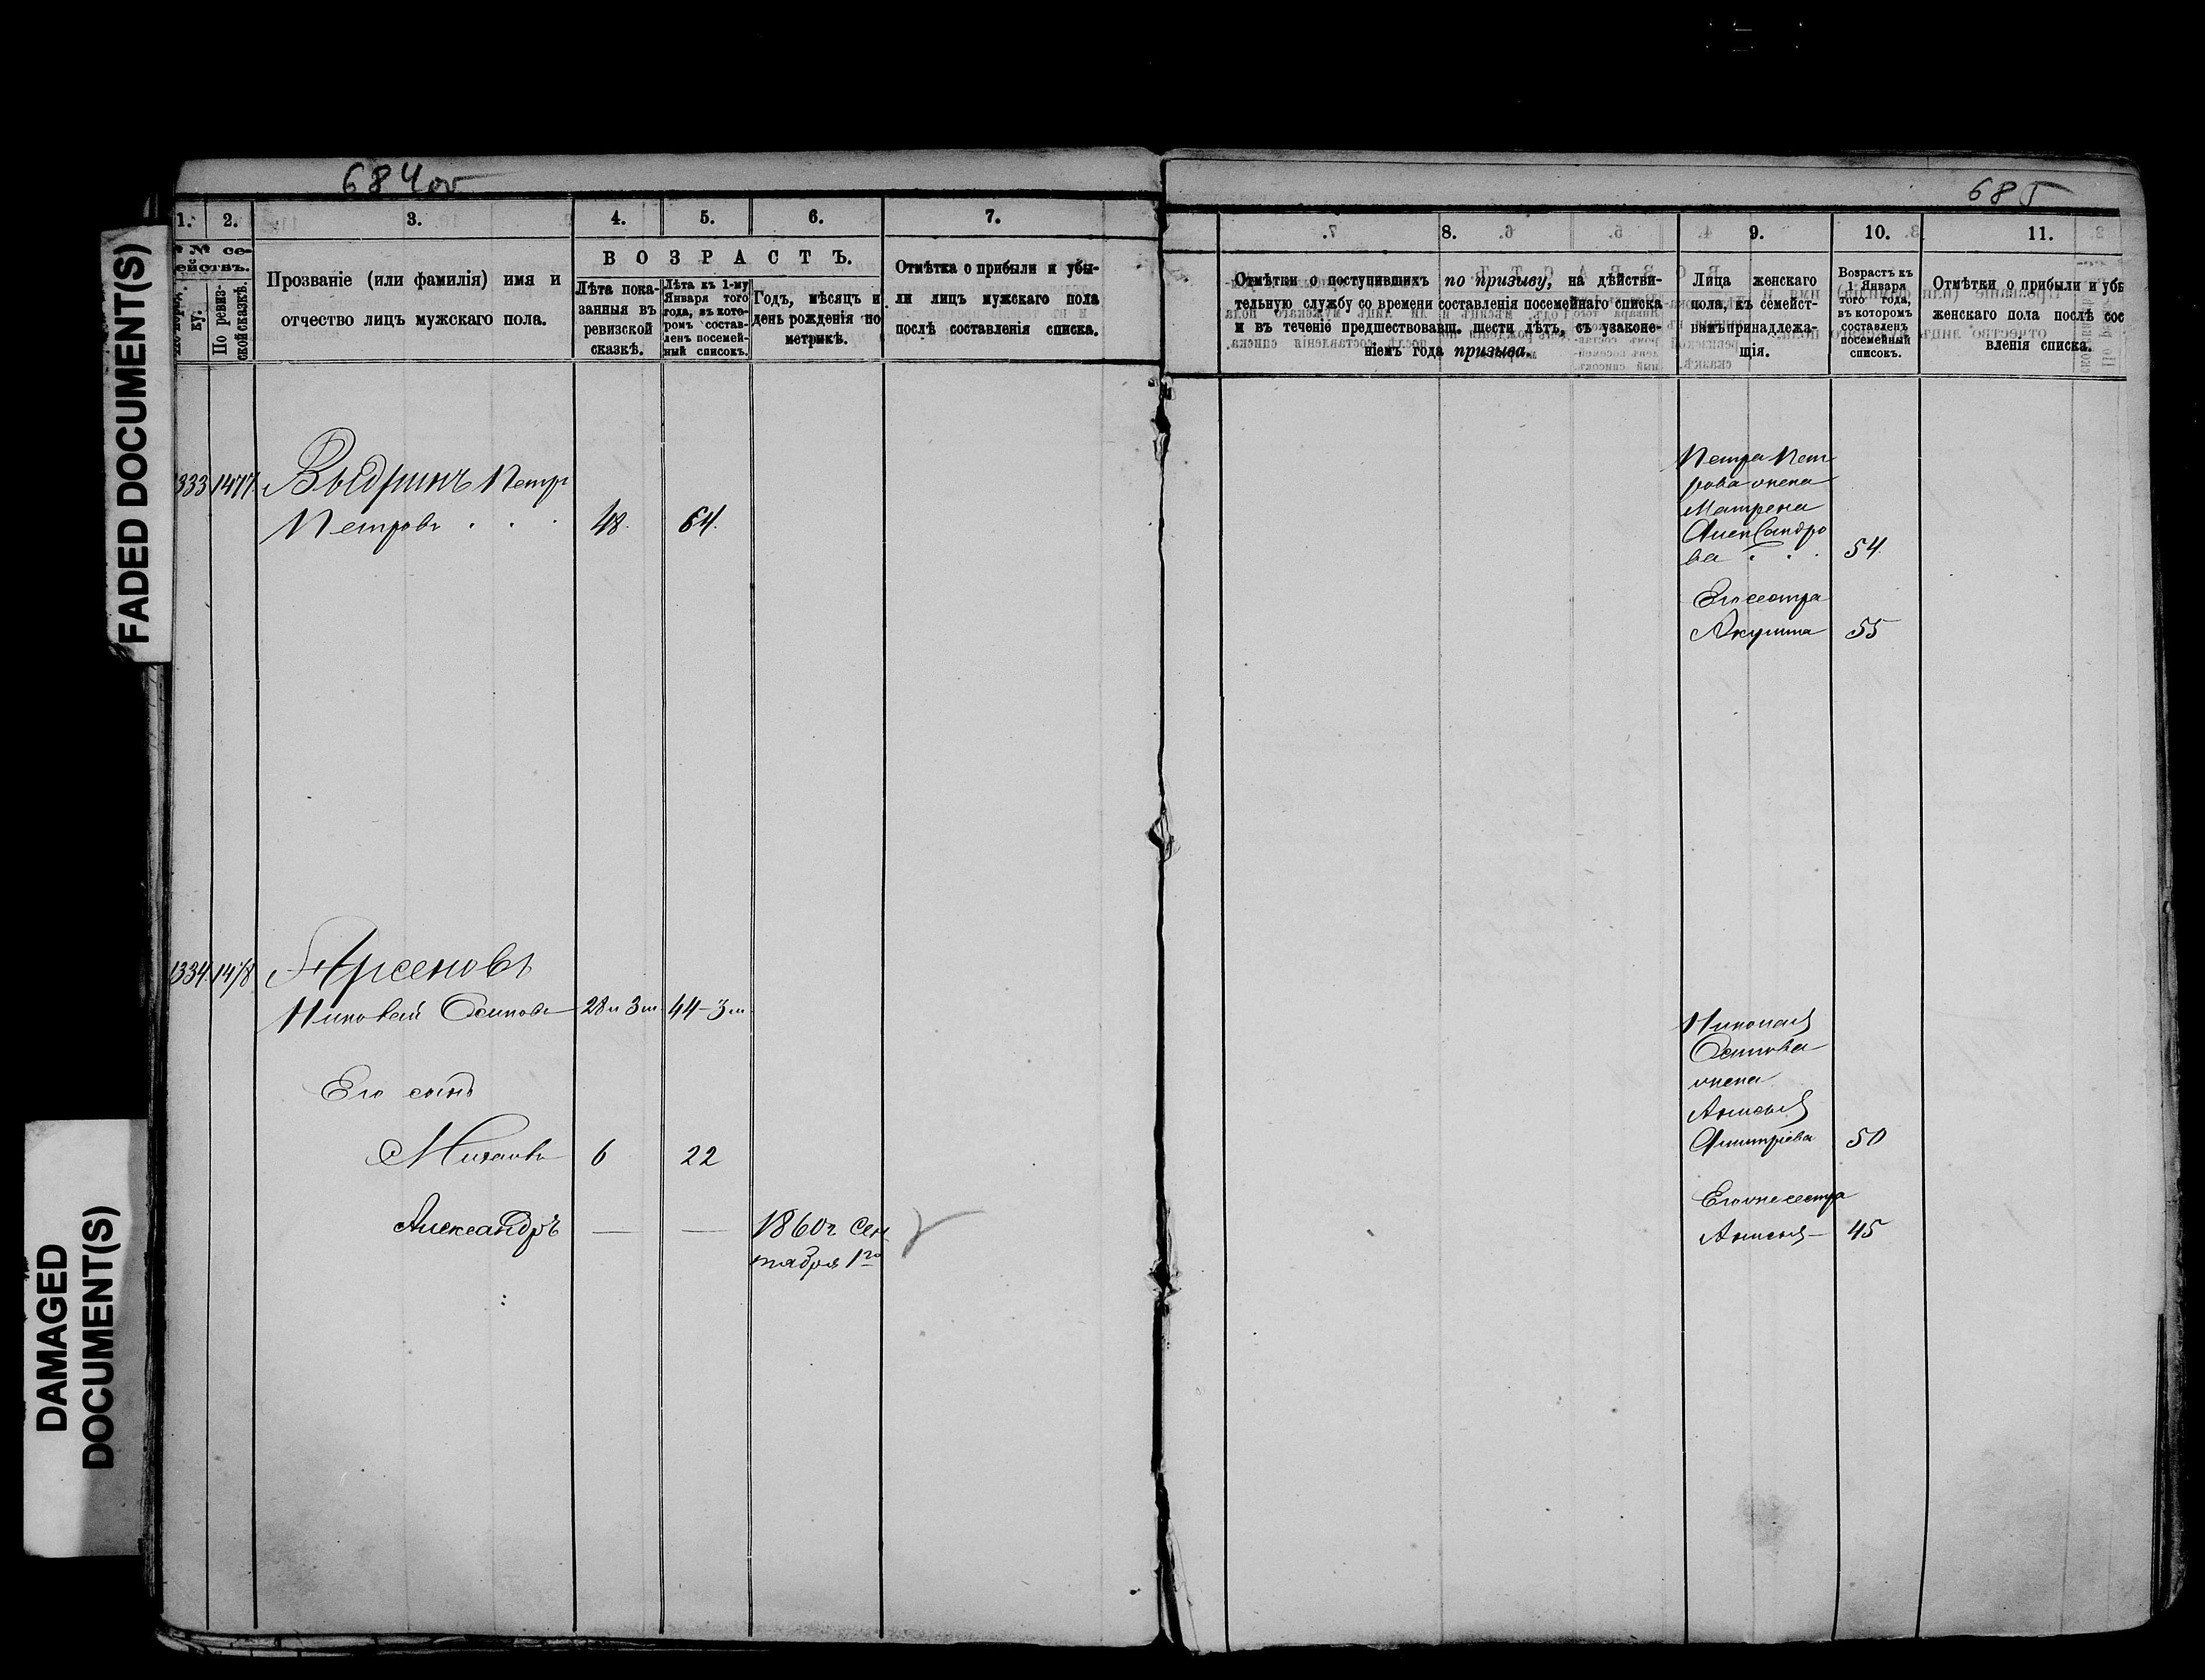 684об
685
FADED DOCUMENT(S)
DAMAGED
DOCUMENT(S)
1. 2. 3. 4. 5. 6. 7.
№№ се-
ействъ.
По ревиз-
ской сказкѣ.
Прозваніе (или фамилія) имя и
отчество лицъ мужскаго пола.
ВОЗРАСТЪ.
Лѣта пока-
занныя въ
ревизской
сказкѣ.
Лѣта къ 1-му
Января того
года, въ кото-
ромъ состав-
ленъ посемей-
ный списокъ.
Годъ, мѣсяцъ и
день рожденія по
метрикѣ.
Отмѣтка о прибыли и убы-
ли лицъ мужскаго пола
послѣ составленія списка.
8. 9. 10. 11.
Отмѣтки о поступившихъ по призыву, на дѣйстви-
тельную службу со времени составленія посемейнаго списка
и въ теченіе предшествовавш. шести лѣтъ, съ узаконе-
ніемъ года призыва.
Лица женскаго
пола, къ семейст-
вамъ принадлежа-
щія.
Возрастъ къ
1 Января
того года,
въ которомъ
составленъ
посемейный
списокъ.
Отмѣтки о прибыли и убы
женскаго пола послѣ сос
вленія списка.
333 1477 Выдринъ Петръ
Петровъ . . . 48. 64.
Петра Пет
рова жена
Матрена
Александро
ва . . . 54.
Его сестра
Акулина 55
1334 1478 Арсеновъ
Николай Осиповъ 28 и 3 м 44-3 м
Его сынъ
Михаилъ 6 22
Александръ — — 1860 г. Сен
тября 1го
Николая
Осипова
жена
Анисья
Дмитріева 50
Его же сестра
Анисья — 45